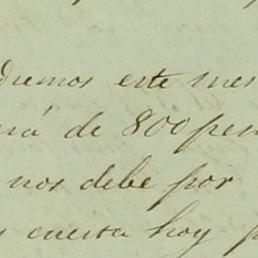 dremos este mes
erá de 800 pes
nos debe por
s cuesta hoy p